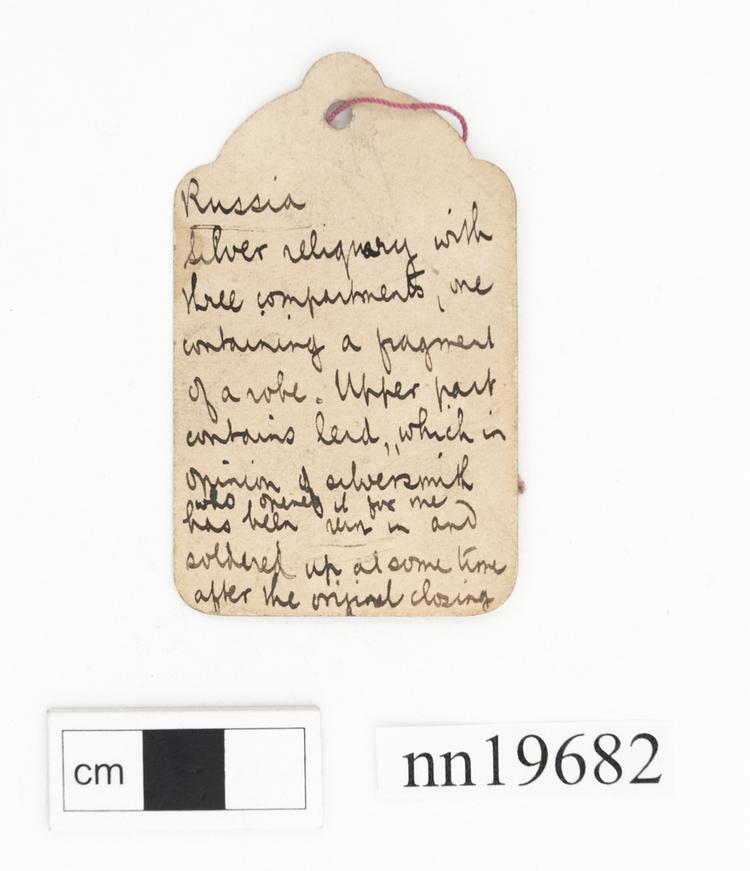 Russia
Silver reliquary with
three compartments, one
containing a fragment
of a robe. Upper part
contains lead, which in
opinion of silversmith
who opened it for me
has been run in and
soldered up at some time
after the original closing
cm
nn19682